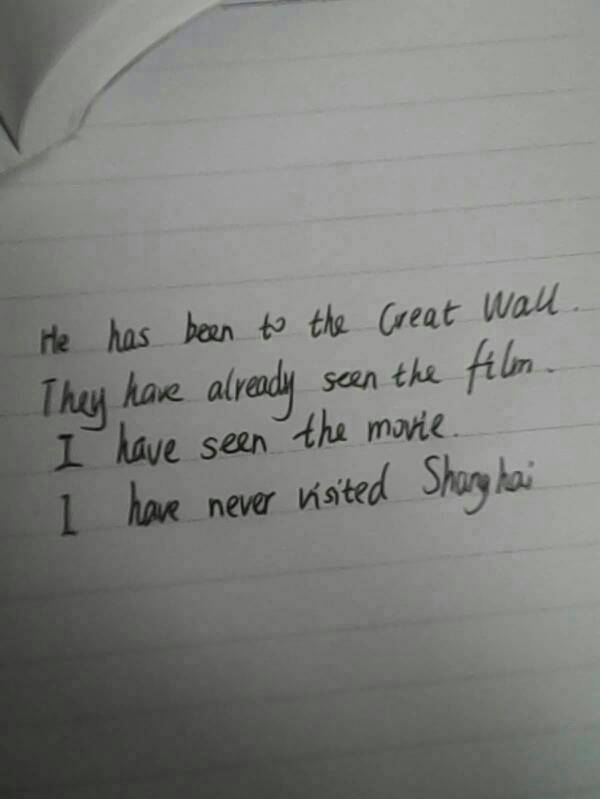 He has been to the Great Wall.
They have already seen the film.
I have seen the movie.
I have never visited Shanghai